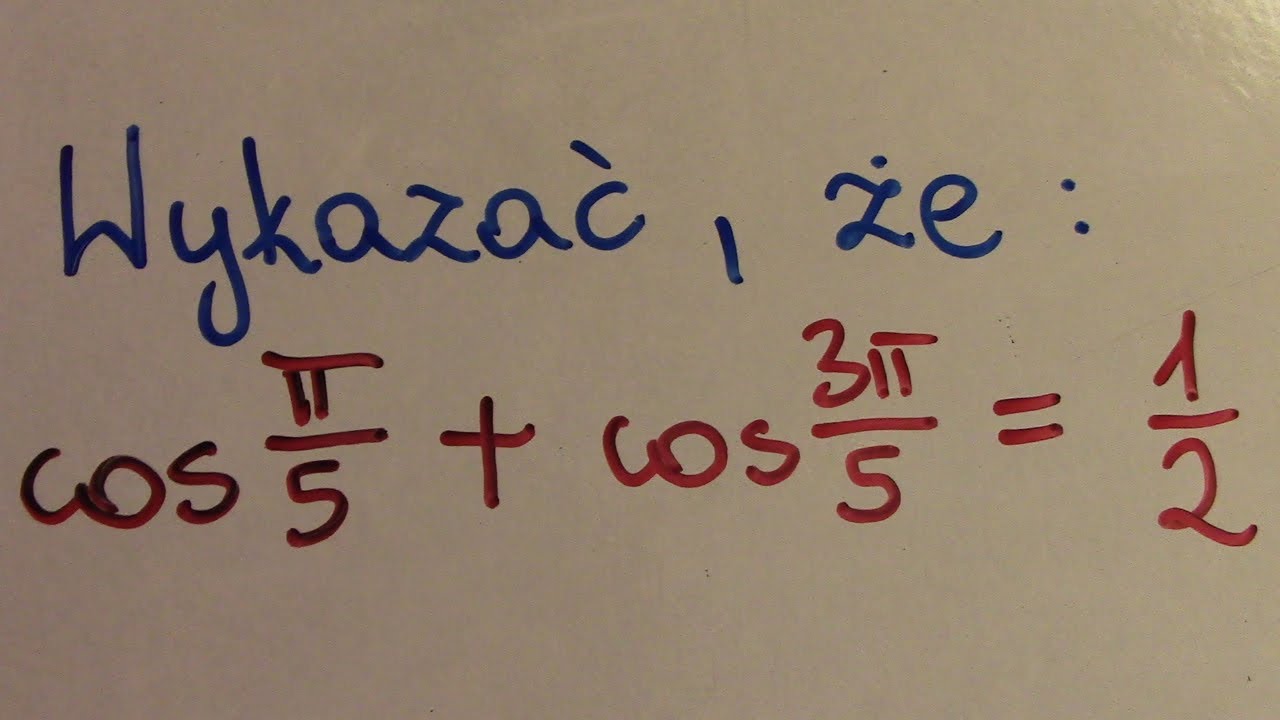 Wykazać, że:
cos π/5 + cos 3π/5 = 1/2